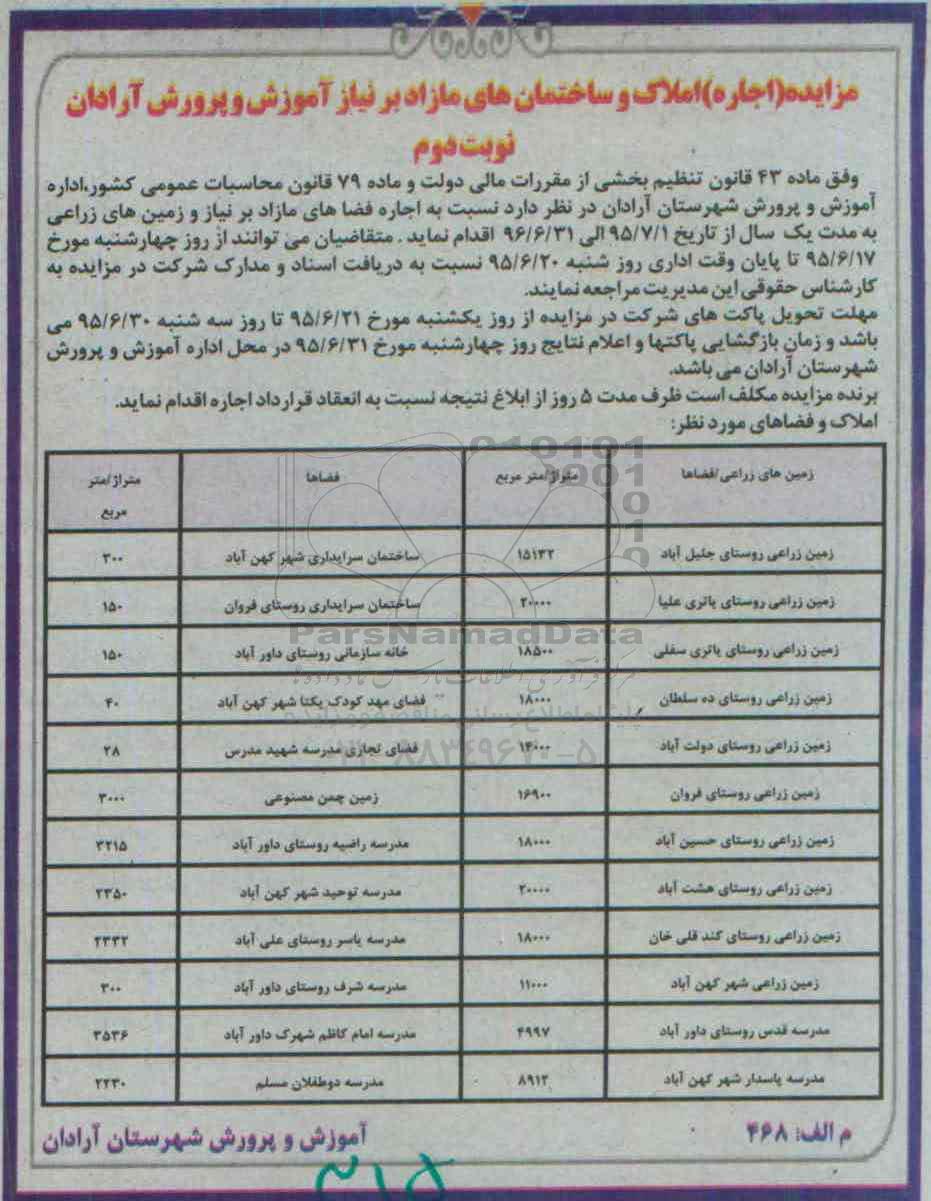 مزایده(اجاره)املاک و ساختمان های مازاد بر نیاز آموزش و پرورش آرادان
نوبت دوم
وفق ماده ۴۳ قانون تنظیم بخشی از مقررات مالی دولت و ماده ۷۹ قانون محاسبات عمومی کشور،اداره
آموزش و پرورش شهرستان آرادان در نظر دارد نسبت به اجاره فضا های مازاد بر نیاز و زمین های زراعی
به مدت یک سال از تاریخ ۹۵/۷/۱ الی ۹۶/۶/۳۱ اقدام نماید . متقاضیان می توانند از روز چهارشنبه مورخ
۹۵/۶/۱۷ تا پایان وقت اداری روز شنبه ۹۵/۶/۲۰ نسبت به دریافت اسناد و مدارک شرکت در مزایده به
کارشناس حقوقی این مدیریت مراجعه نمایند.
مهلت تحویل پاکت های شرکت در مزایده از روز یکشنبه مورخ ۹۵/۶/۲۱ تا روز سه شنبه ۹۵/۶/۳۰ می
باشد و زمان بازگشایی پاکتها و اعلام نتایج روز چهارشنبه مورخ ۹۵/۶/۳۱ در محل اداره آموزش و پرورش
شهرستان آرادان می باشد.
برنده مزایده مکلف است ظرف مدت ۵ روز از ابلاغ نتیجه نسبت به انعقاد قرارداد اجاره اقدام نماید.
املاک و فضاهای مورد نظر:
زمین های زراعی/فضاها متراژ/متر مربع فضاها متراژ/متر مربع
زمین زراعی روستای جلیل آباد ۱۵۱۳۲ ساختمان سرایداری شهر کهن آباد ۳۰۰
زمین زراعی روستای یاتری علیا ۲۰۰۰۰ ساختمان سرایداری روستای فروان ۱۵۰
زمین زراعی روستای یاتری سفلی ۱۸۵۰۰ خانه سازمانی روستای داور آباد ۱۵۰
زمین زراعی روستای ده سلطان ۱۸۰۰۰ فضای مهد کودک یکتا شهر کهن آباد ۴۰
زمین زراعی روستای دولت آباد ۱۴۰۰۰ فضای تجاری مدرسه شهید مدرس ۲۸
زمین زراعی روستای فروان ۱۶۹۰۰ زمین چمن مصنوعی ۳۰۰۰
زمین زراعی روستای حسین آباد ۱۸۰۰۰ مدرسه راضیه روستای داور آباد ۳۲۱۵
زمین زراعی روستای هشت آباد ۲۰۰۰۰ مدرسه توحید شهر کهن آباد ۲۳۵۰
زمین زراعی روستای کند قلی خان ۱۸۰۰۰ مدرسه یاسر روستای علی آباد ۲۳۳۲
زمین زراعی شهر کهن آباد ۱۱۰۰۰ مدرسه شرف روستای داور آباد ۳۰۰
مدرسه قدس روستای داور آباد ۴۹۹۷ مدرسه امام کاظم شهرک داور آباد ۳۵۳۶
مدرسه پاسدار شهر کهن آباد ۸۹۱۲ مدرسه دوطفلان مسلم ۲۲۳۰
م الف: ۴۶۸
آموزش و پرورش شهرستان آرادان
ParsNamadData
۰۲۱-۸۸۳۴۹۶۷۰-۵